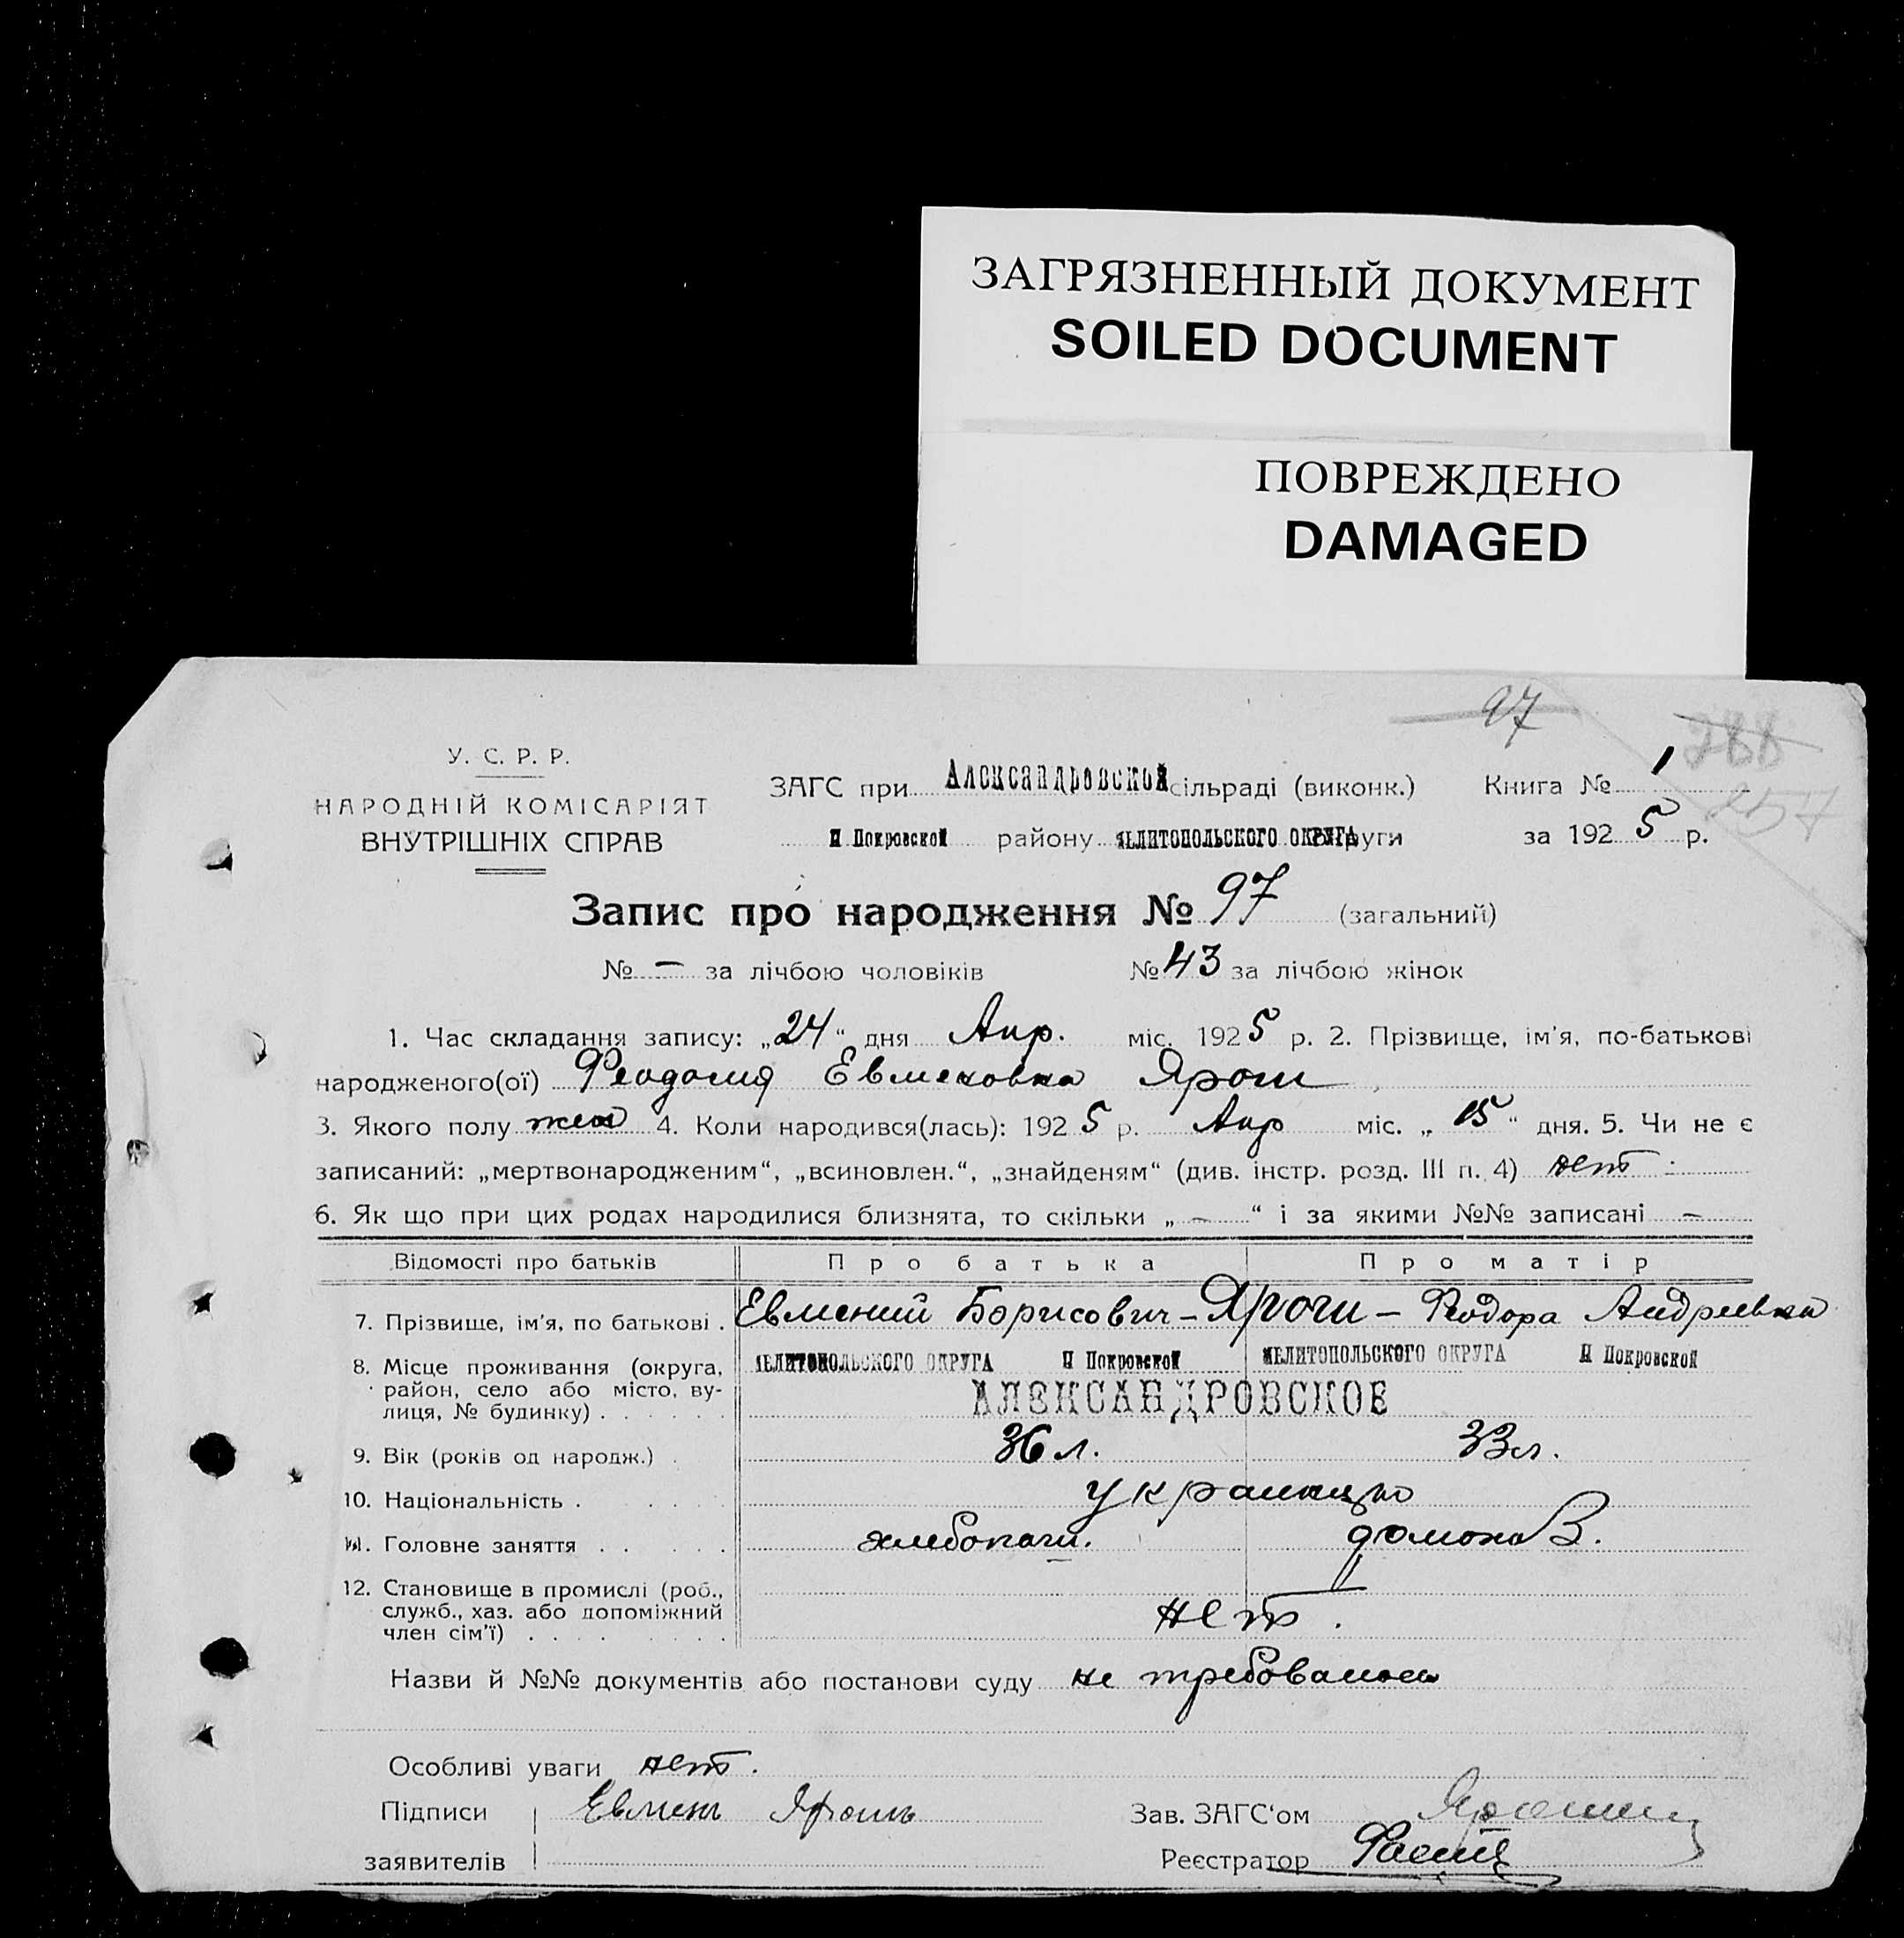 ЗАГРЯЗНЕННЫЙ ДОКУМЕНТ
SOILED DOCUMENT
ПОВРЕЖДЕНО
DAMAGED
97
288
257
У. С. Р. Р.
НАРОДНІЙ КОМІСАРІЯТ
ВНУТРІШНІХ СПРАВ
ЗАГС при Александровской сільраді (виконк.) Книга № 1
Н Покровской району МЕЛИТОПОЛЬСКОГО ОКРУГА округи за 1925 р.
Запис про народження № 97 (загальний)
№ – за лічбою чоловіків № 43 за лічбою жінок
1. Час складання запису: „24“ дня Апр. міс. 1925 р. 2. Прізвище, ім'я, по-батькові
народженого(ої) Феодосия Евменовна Ярош
3. Якого полу жен 4. Коли народився(лась): 1925 р. Апр міс. „15“ дня. 5. Чи не є
записаний: „мертвонародженим“, „всиновлен.“, „знайденям“ (див. інстр. розд. III п. 4) нет
6. Як що при цих родах народилися близнята, то скільки „–“ і за якими №№ записані –
Відомості про батьків Про батька Про матір
7. Прізвище, ім'я, по батькові . Евмений Борисович – Ярош – Феодора Андреевна
8. Місце проживання (округа, район, село або місто, вулиця, № будинку) . МЕЛИТОПОЛЬСКОГО ОКРУГА Н Покровской МЕЛИТОПОЛЬСКОГО ОКРУГА Н Покровской
АЛЕКСАНДРОВСКОЕ
9. Вік (років од народж.) . 36 л. 33 л.
10. Національність . украинцы
11. Головне заняття . хлебопаш. домохоз.
12. Становище в промислі (роб., служб., хаз. або допоміжний член сім'ї) . нет.
Назви й №№ документів або постанови суду не требовалось
Особливі уваги нет.
Підписи Евмен Ярош Зав. ЗАГС'ом
заявителів Реєстратор